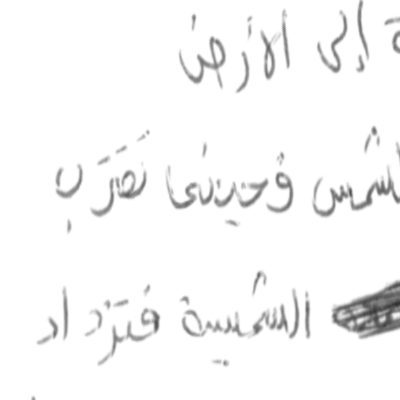 ة إلى الأرض
الشمس وحينئذ تضرب
الشمسية فتزداد